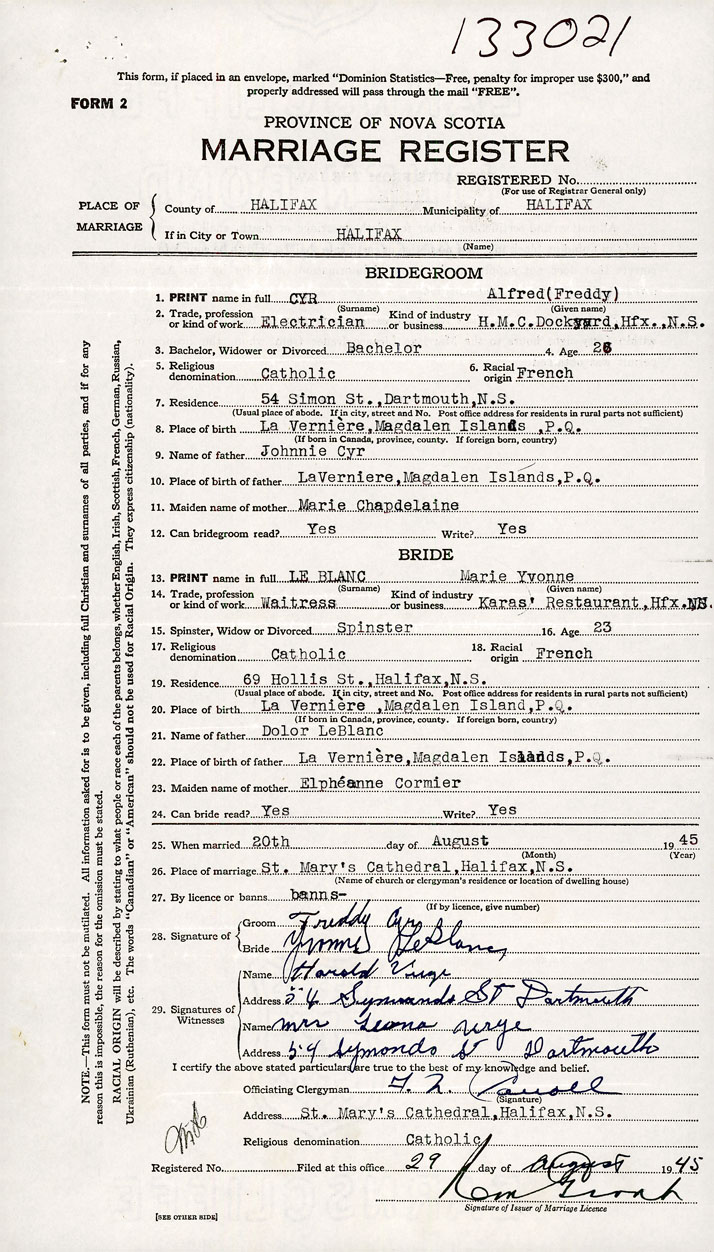 133021
This form, if placed in an envelope, marked "Dominion Statistics—Free, penalty for improper use $300," and
properly addressed will pass through the mail "FREE".
FORM 2
PROVINCE OF NOVA SCOTIA
MARRIAGE REGISTER
REGISTERED No.
(For use of Registrar General only)
PLACE OF MARRIAGE
County of HALIFAX Municipality of HALIFAX
If in City or Town HALIFAX
(Name)
BRIDEGROOM
1. PRINT name in full CYR Alfred(Freddy)
(Surname) (Given name)
2. Trade, profession or kind of work Electrician Kind of industry or business H.M.C.Dockyard,Hfx.,N.S.
3. Bachelor, Widower or Divorced Bachelor 4. Age 26
5. Religious denomination Catholic 6. Racial origin French
7. Residence 54 Simon St.,Dartmouth,N.S.
(Usual place of abode. If in city, street and No. Post office address for residents in rural parts not sufficient)
8. Place of birth La Vernière,Magdalen Islands ,P.Q.
(If born in Canada, province, county. If foreign born, country)
9. Name of father Johnnie Cyr
10. Place of birth of father LaVerniere,Magdalen Islands,P.Q.
11. Maiden name of mother Marie Chapdelaine
12. Can bridegroom read? Yes Write? Yes
BRIDE
13. PRINT name in full LE BLANC Marie Yvonne
(Surname) (Given name)
14. Trade, profession or kind of work Waitress Kind of industry or business Karas' Restaurant,Hfx.NS.
15. Spinster, Widow or Divorced Spinster 16. Age 23
17. Religious denomination Catholic 18. Racial origin French
19. Residence 69 Hollis St.,Halifax,N.S.
(Usual place of abode. If in city, street and No. Post office address for residents in rural parts not sufficient)
20. Place of birth La Vernière ,Magdalen Island,P.Q.
(If born in Canada, province, county. If foreign born, country)
21. Name of father Dolor LeBlanc
22. Place of birth of father La Vernière,Magdalen Islands,P.Q.
23. Maiden name of mother Elphéanne Cormier
24. Can bride read? Yes Write? Yes
25. When married 20th day of August 1945
(Month) (Year)
26. Place of marriage St. Mary's Cathedral,Halifax,N.S.
(Name of church or clergyman's residence or location of dwelling house)
27. By licence or banns banns-
(If by licence, give number)
28. Signature of
Groom Freddy Cyr
Bride Yvonne LeBlanc
29. Signatures of Witnesses
Name Harold Virge
Address 54 Symonds St Dartmouth
Name Mrs Leona Virge
Address 54 Symonds St Dartmouth
I certify the above stated particulars are true to the best of my knowledge and belief.
Officiating Clergyman Carroll
(Signature)
Address St. Mary's Cathedral,Halifax,N.S.
Religious denomination Catholic
Registered No. Filed at this office 29 day of August 1945
Signature of Issuer of Marriage Licence
[SEE OTHER SIDE]
NOTE.—This form must not be mutilated. All information asked for is to be given, including full Christian and surnames of all parties, and if for any
reason this is impossible, the reason for the omission must be stated.
RACIAL ORIGIN will be described by stating to what people or race each of the parents belongs, whether English, Irish, Scottish, French, German, Russian,
Ukrainian (Ruthenian), etc. The words "Canadian" or "American" should not be used for Racial Origin. They express citizenship (nationality).